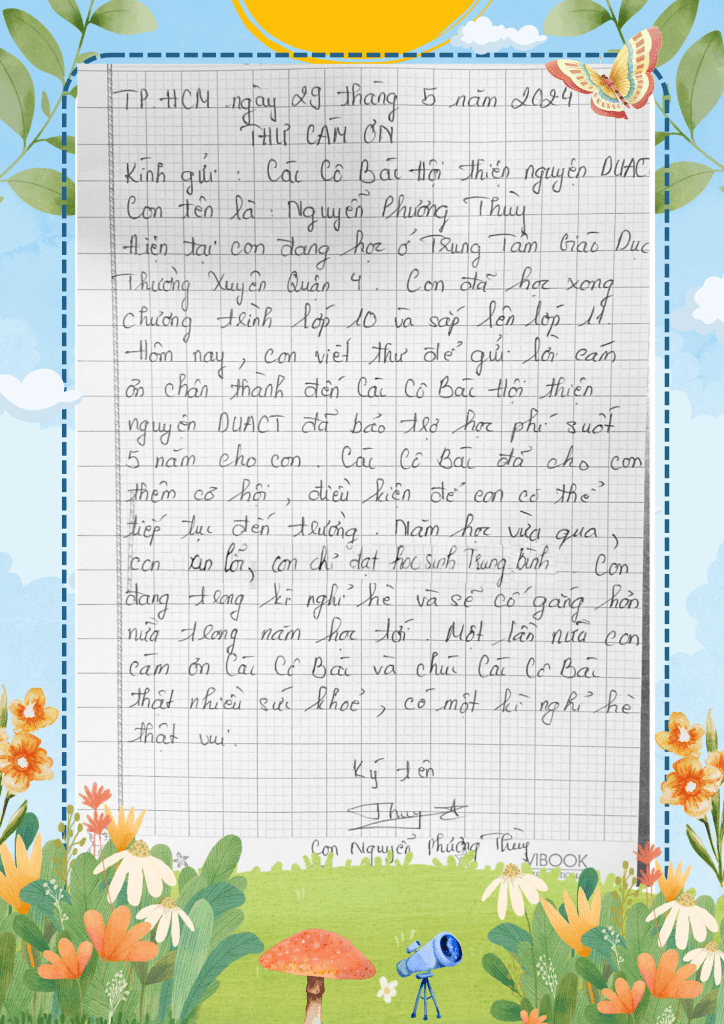 TP. HCM ngày 29 tháng 5 năm 2024
THƯ CẢM ƠN
Kính gửi : Các Cô Bác Hội thiện nguyện DUACT
Con tên là : Nguyễn Phương Thùy
Hiện tại con đang học ở Trung Tâm Giáo Dục
Thường Xuyên Quận 4. Con đã học xong
chương trình lớp 10 và sắp lên lớp 11.
Hôm nay, con viết thư để gửi lời cảm
ơn chân thành đến Các Cô Bác Hội thiện
nguyện DUACT đã bảo trợ học phí suốt
5 năm cho con. Các Cô Bác đã cho con
thêm cơ hội, điều kiện để con có thể
tiếp tục đến trường. Năm học vừa qua,
con xin lỗi, con chỉ đạt học sinh Trung bình. Con
đang trong kì nghỉ hè và sẽ cố gắng hơn
nữa trong năm học tới. Một lần nữa con
cảm ơn Các Cô Bác và chúc Các Cô Bác
thật nhiều sức khoẻ, có một kì nghỉ hè
thật vui.
Ký tên
Thuy
Con Nguyễn Phương Thùy
VIBOOK